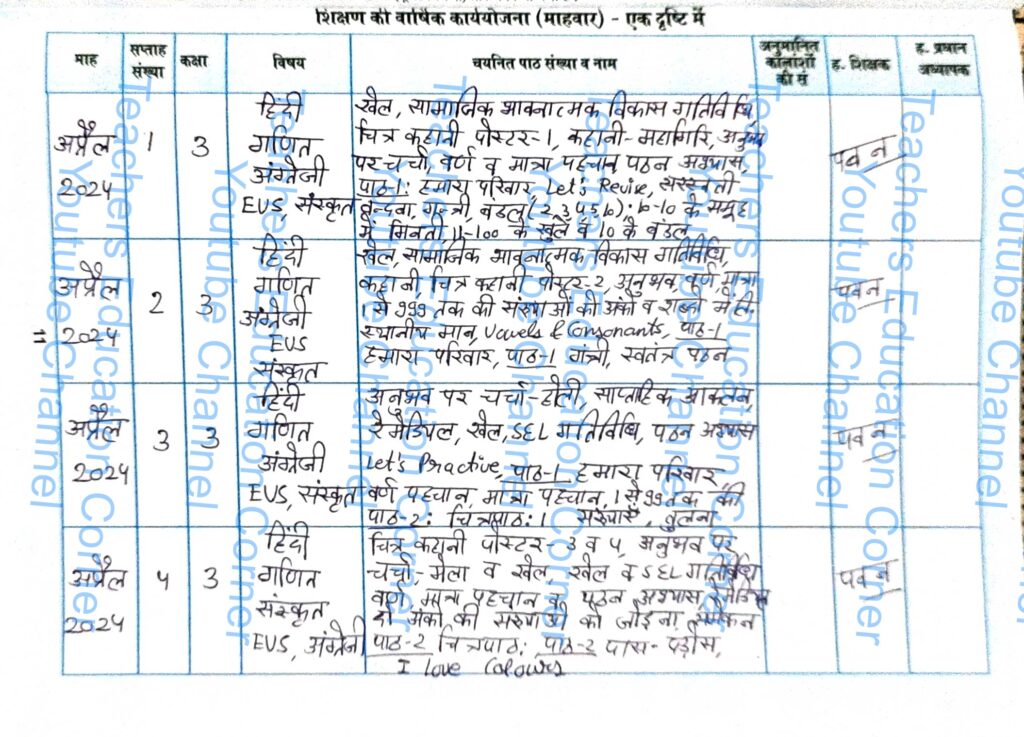 शिक्षण की वार्षिक कार्ययोजना (माहवार) - एक दृष्टि में
माह सप्ताह संख्या कक्षा विषय चयनित पाठ संख्या व नाम अनुमानित कालांशों की सं ह. शिक्षक ह. प्रधान अध्यापक
अप्रैल 2024 1 3 हिंदी गणित अंग्रेजी EVS, संस्कृत
खेल, सामाजिक भावनात्मक विकास गतिविधि
चित्र कहानी पोस्टर-1, कहानी-महागिरि, अनुभव
पर चर्चा, वर्ण व मात्रा पहचान, पठन अभ्यास,
पाठ-1: हमारा परिवार, Let's Revise, सरस्वती
वन्दना, गन्त्री, बंडल (2,3,4,5,6); 10-10 के समूह
में गिनती, 11-100 के खुले व 10 के बंडल
पवन
अप्रैल 2024 2 3 हिंदी गणित अंग्रेजी EUS संस्कृत
खेल, सामाजिक भावनात्मक विकास गतिविधि,
कहानी, चित्र कहानी पोस्टर-2, अनुभव, वर्ण, मात्रा
1 से 999 तक की संख्याओं को अंको व शब्दो में लि.
स्थानीय मान, Vowels & Consonants, पाठ-1
हमारा परिवार, पाठ-1 गंत्री, स्वतंत्र पठन
पवन
11
अप्रैल 2024 3 3 हिंदी गणित अंग्रेजी EUS, संस्कृत
अनुभव पर चर्चा-होली, साप्ताहिक आकलन,
रेमेडियल, खेल, SEL गतिविधि, पठन अभ्यास
Let's Practive, पाठ-1 हमारा परिवार,
वर्ण पहचान, मात्रा पहचान, 1 से 99 तक की
पाठ-2: चित्रपाठ: 1 संख्याएँ, तुलना
पवन
अप्रैल 2024 4 3 हिंदी गणित संस्कृत EUS, अंग्रेजी
चित्र कहानी पोस्टर-3 व 4, अनुभव पर
चर्चा-मेला व खेल, खेल व SEL गतिविधि
वर्ण, मात्रा पहचान व पठन अभ्यास, रेमेडियल
दो अंको की संख्याओं को जोड़ना
पाठ-2 चित्रपाठ: पाठ-2 पास-पड़ोस,
I love Colours
पवन
Teachers Education Corner
Youtube Channel
Teachers Education Corner
Youtube Channel
Teachers Education Corner
Youtube Channel
Teachers Education Corner
Youtube Channel